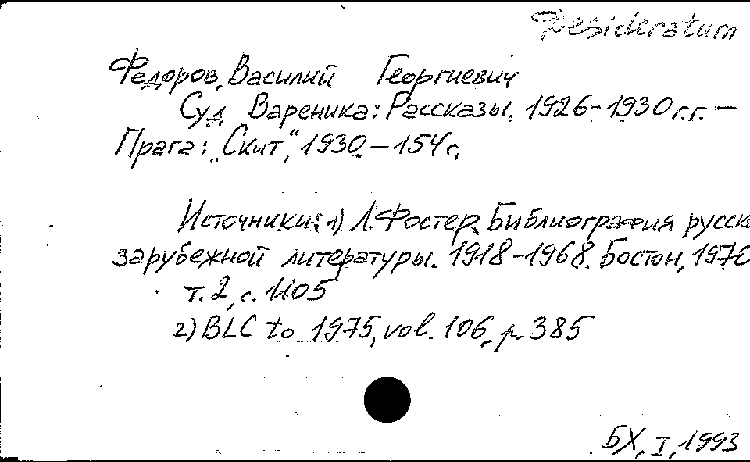 Desideratum
Федоров, Василий Георгиевич
Суд Вареника: Рассказы. 1926-1930 г.г. —
Прага: „Скит", 1930. — 154 с.
Источники: 1) Л. Фостер. Библиография русск
зарубежной литературы. 1918-1968. Бостон, 1970
т. 2, с. 1105
2) BLC to 1975, vol. 106, p. 385
БХ, I, 1993